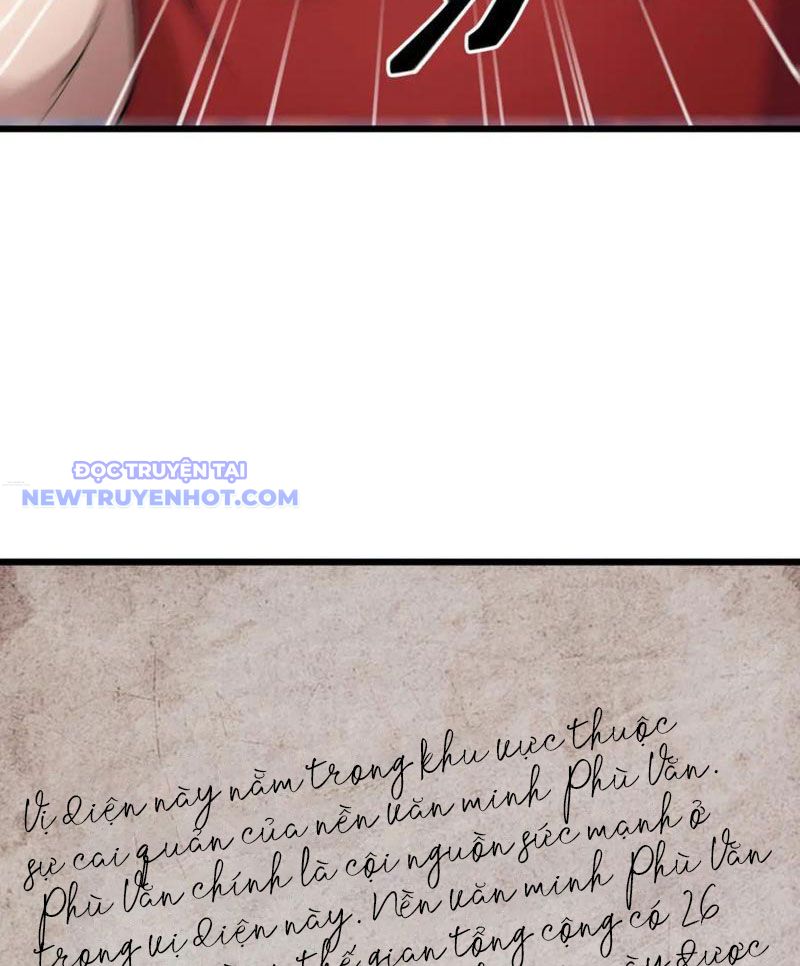 ĐỌC TRUYỆN TẠI
NEWTRUYENHOT.COM
Vị diện này nằm trong khu vực thuộc
sự cai quản của nền văn minh Phù Văn.
Phù Văn chính là cội nguồn sức mạnh ở
trong vị diện này. Nền văn minh Phù Văn
thế gian tổng cộng có 26
được